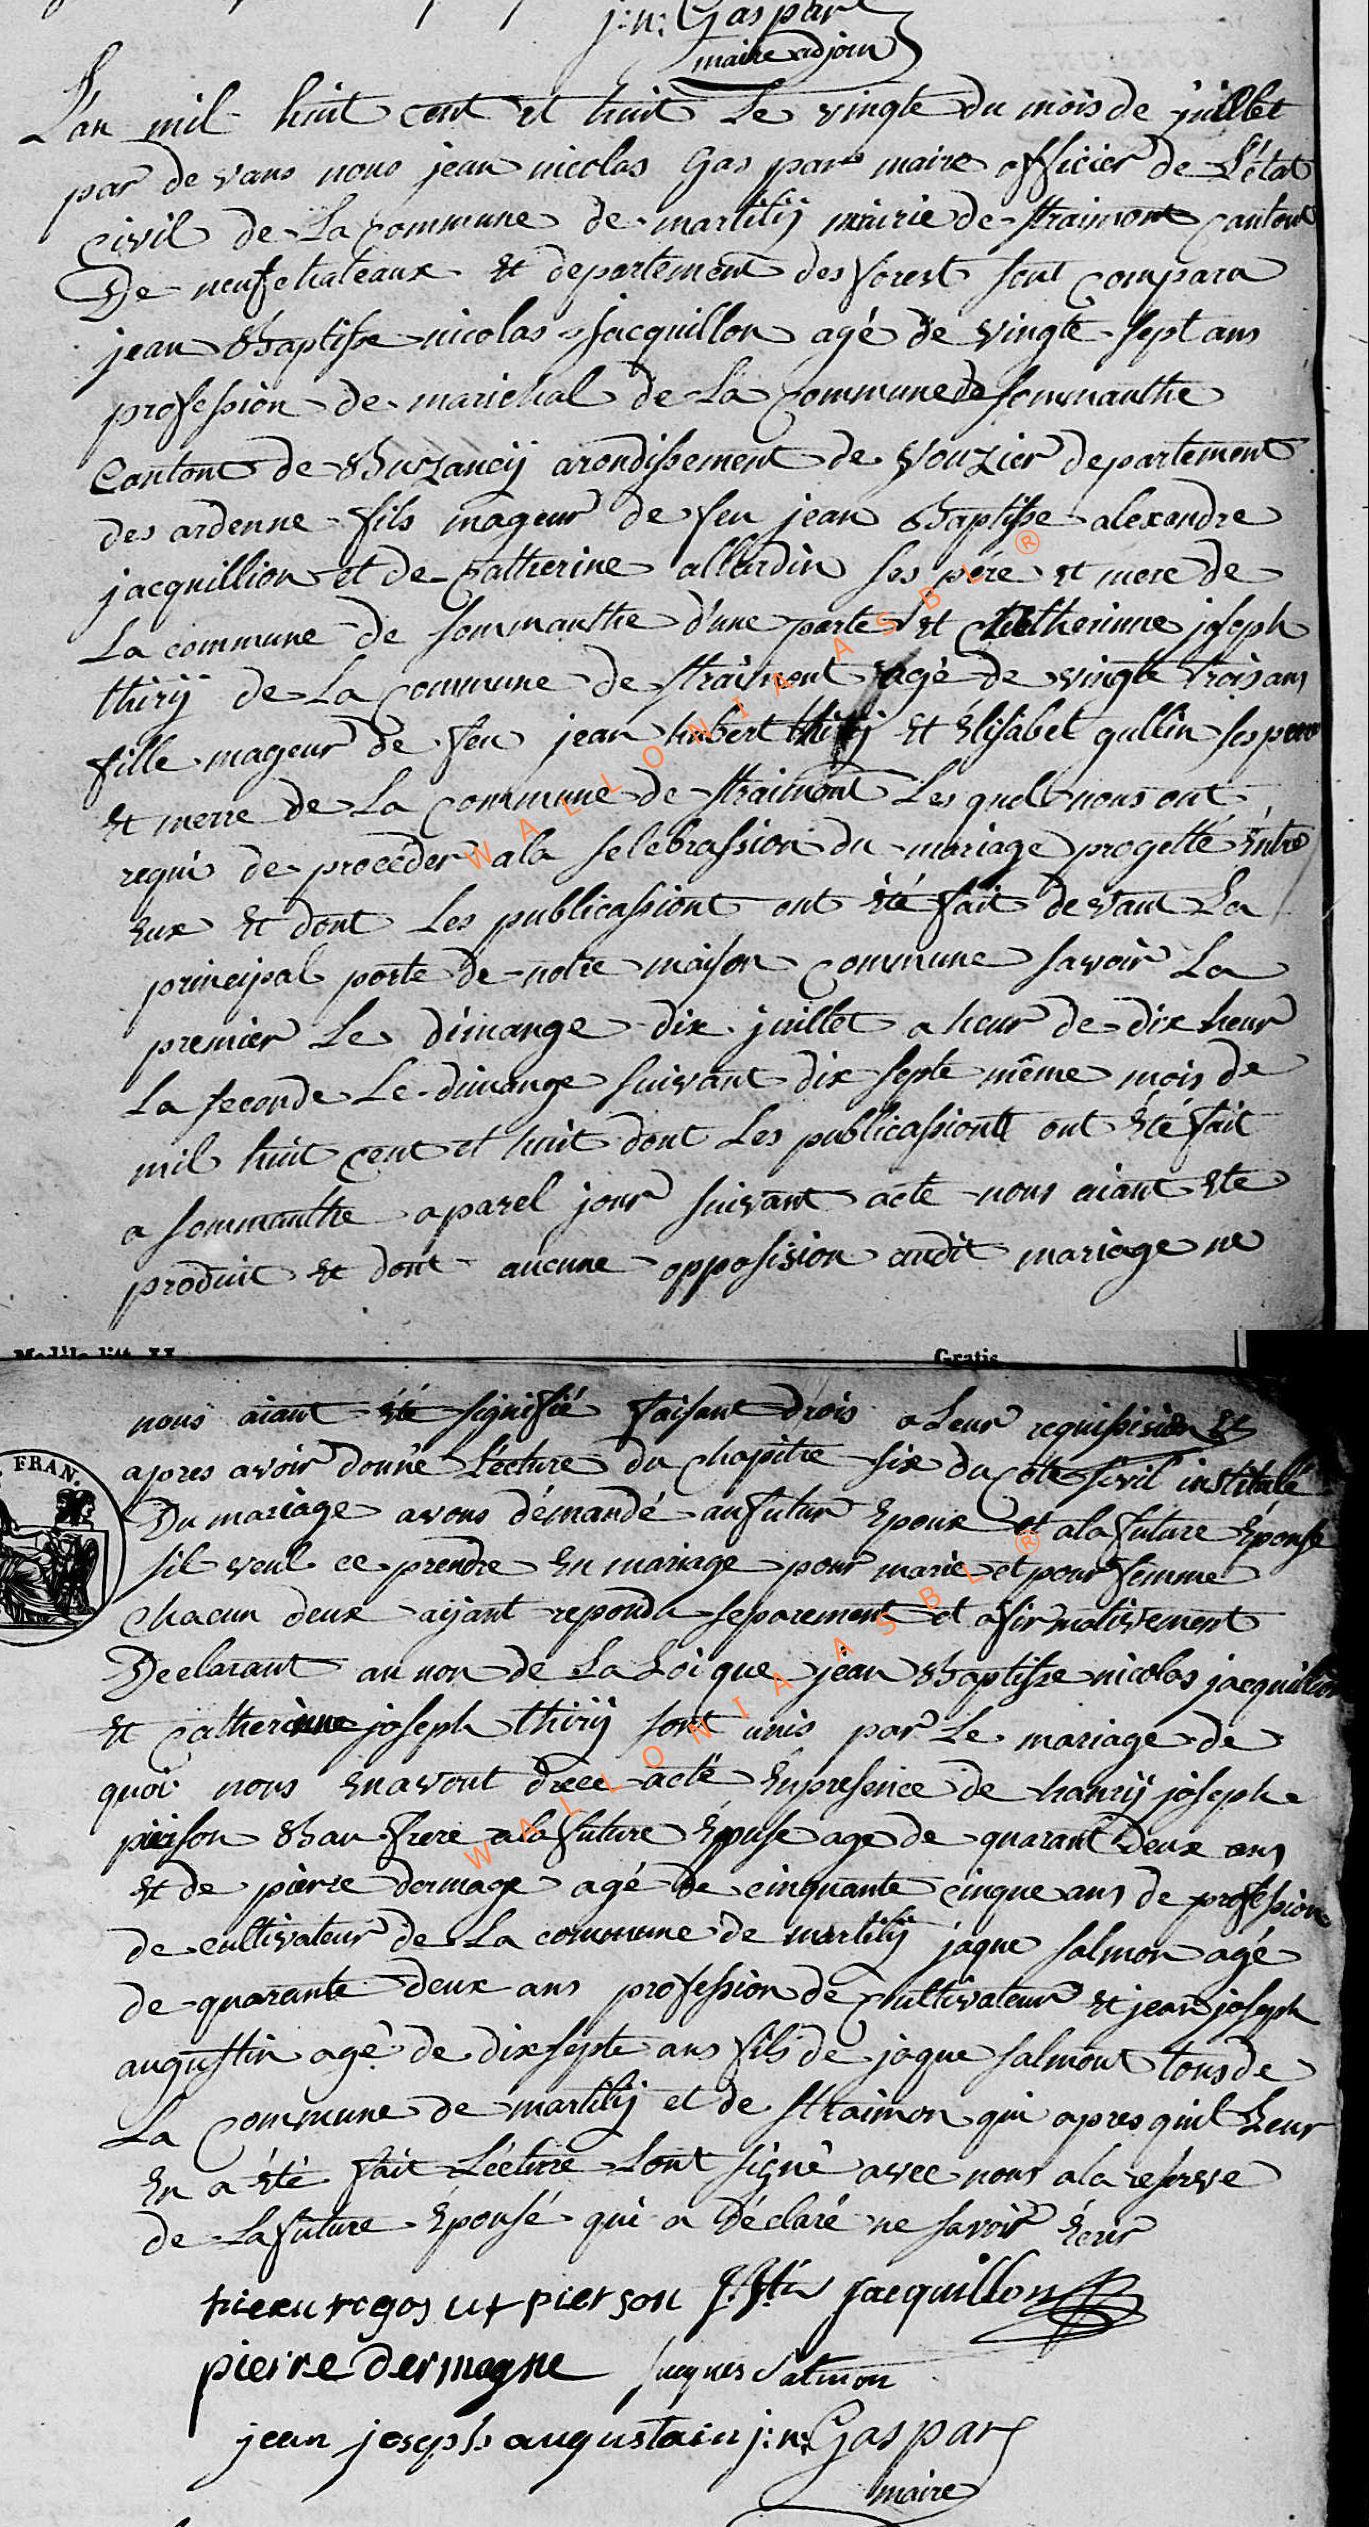 j: n: Gaspar
maire adjoin
L'an mil huit cent et huit Le vingte du mois de juillet
par de vans nous jean nicolas Gaspar maire officier de L'état
civil de La commune de martilÿ mairie de straimont cantont
De neufchateaux et departement des forest sont compara
jean Baptisse nicolas jacquillon agé de vingte sept ans
profession de marichal de La commune de sommanthe
Cantont de Buzancÿ arondissement de vouzier departement
des ardenne fils mageur de feu jean Baptisse alexandre
jacquillion et de Catherine allardin ses pére et mere de
La commune de sommanthe d'une parte et Catherinne joseph
thirÿ de La commune de straimont agé de vingte trois ans
fille mageur de feu jean hubert thirÿ et Élisabet qullin ses pere
et merre de La commune de straimont Les quelt nous ont
requi de procéder a la selebrassion du mariage progetté Entre
Eux Et dont Les publicassiont ont été fait devant La
principal porte de notre maison commune savoir La
premier Le dimange dix juillet a heur de dix heur
La seconde Le dimange suivant dix septe même mois de
mil huit cent et huit dont Les publicassiont ont Été fait
a sommanthe a parel jour suivant acte nous aiant ete
produit et dont aucune opposision audit mariage ne
Gratis
nous aiant été signifié faisant drois a Leur requissision et
apres avoir donné Lecture du chapitre six du Cote sivil institulé
Du mariage avons démandé au futur Epoux et a la future Épouse
sil veul ce prendre En mariage pour marie et pour femme
chacun deux aÿant repondu séparement et afirmativement
Declarant au non de La Loi que jean Baptisse nicolas jacquillion
et catherinne joseph thirÿ sont unis par Le mariage de
quoi nous En avont drece acté En presence de hanrÿ joseph
pierson Bau frere a la future Épuse age de quarant Deux ans
et de pierre dermage agé de cinquante cinque ans de profession
de cultivateur de La commune de martilÿ jaque salmon agé
de quarante deux ans profession de Cultivateur et jean joseph
augustin agé de dix septe ans fils de jaque salmont tous de
La Commune de martilÿ et de straimon qui apres quil Leur
En a été fait Lecture Lont signé avec nous a la reserve
de La future Épousé qui a Déclaré ne savoir Ecrir
pierson jacquillon
pierre dermagne jacques salmon
jean joseph augustain j: n: Gaspar
maire
FRAN.
WALLONIA ASBL ®
WALLONIA ASBL ®